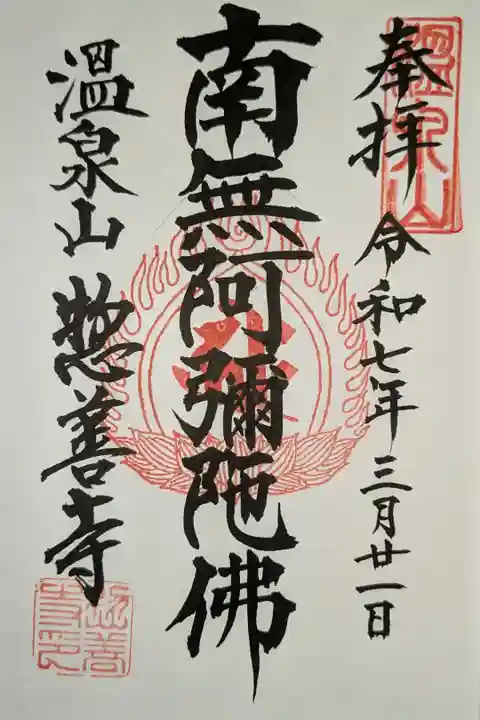 奉拝 令和七年三月廿一日
温泉山
南無阿彌陀佛
温泉山 惣善寺